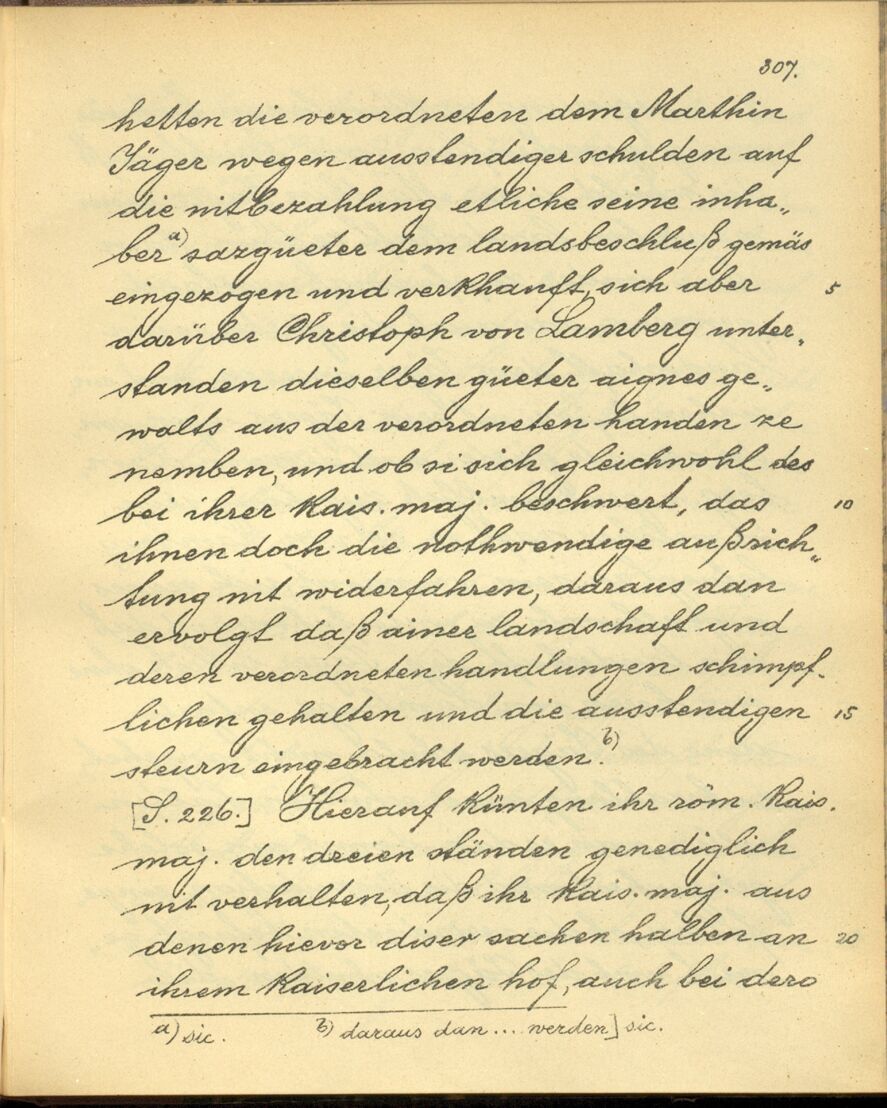 307.
hetten die verordneten dem Marthin
Jäger wegen ausstendiger schulden auf
die nitbezahlung etliche seine inha„
ber a) sazgüeter dem landsbeschluß gemäs
eingezogen und verkhauft, sich aber 5
darüber Christoph von Lamberg unter„
standen dieselben güeter aignes ge„
walts aus der verordneten handen ze
nemben, und ob si sich gleichwohl des
bei ihrer kais. maj. beschwert, das 10
ihnen doch die nothwendige außrich„
tung nit widerfahren, daraus dan
ervolgt daß ainer landschaft und
deren verordneten handlungen schimpf-
lichen gehalten und die ausstendigen 15
steurn eingebracht werden. b)
[S. 226.] Hierauf künten ihr röm. kais.
maj. den dreien ständen genediglich
nit verhalten, daß ihr kais. maj. aus
denen hievor diser sachen halben an 20
ihrem kaiserlichen hof, auch bei dero
a) sic. b) daraus dan ... werden] sic.